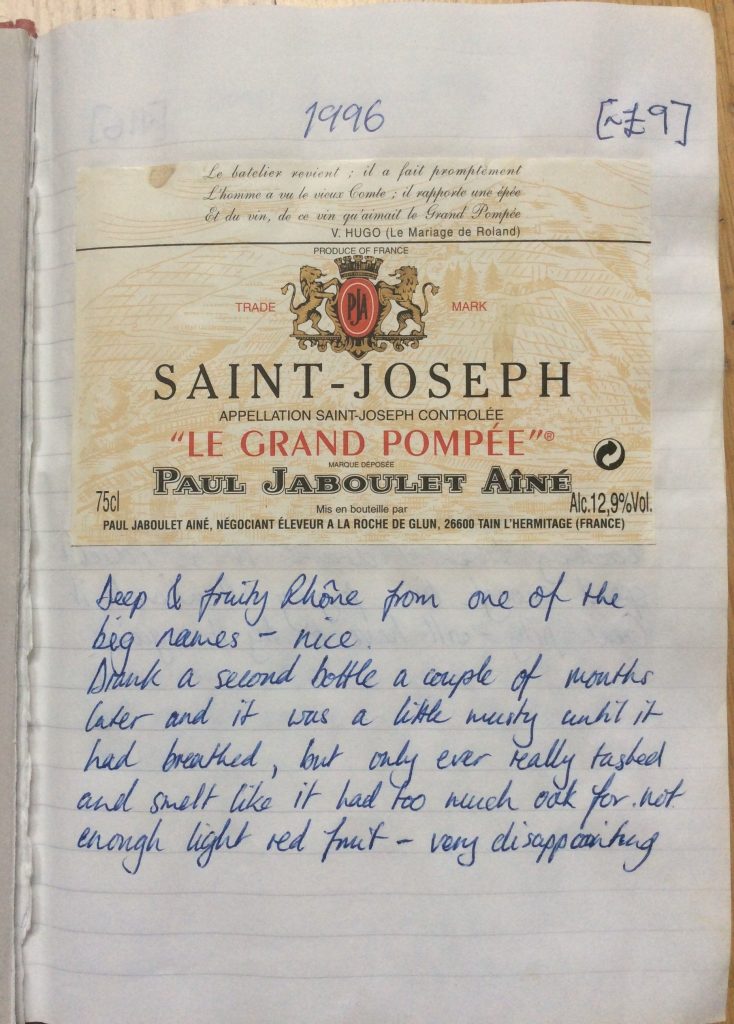 1996 [~£9]
Le batelier revient ; il a fait promptement
L'homme a vu le vieux Comte ; il rapporte une épée
Et du vin, de ce vin qu'aimait le Grand Pompée
V. HUGO (Le Mariage de Roland)
PRODUCE OF FRANCE
TRADE PJA MARK
SAINT-JOSEPH
APPELLATION SAINT-JOSEPH CONTROLÉE
"LE GRAND POMPÉE"®
MARQUE DÉPOSÉE
PAUL JABOULET AÎNÉ
75cl Mis en bouteille par Alc.12,9%Vol.
PAUL JABOULET AINÉ, NÉGOCIANT ÉLEVEUR A LA ROCHE DE GLUN, 26600 TAIN L'HERMITAGE (FRANCE)
Deep & fruity Rhône from one of the
big names - nice.
Drank a second bottle a couple of months
later and it was a little musty until it
had breathed, but only ever really tasted
and smelt like it had too much oak for not
enough light red fruit - very disappointing